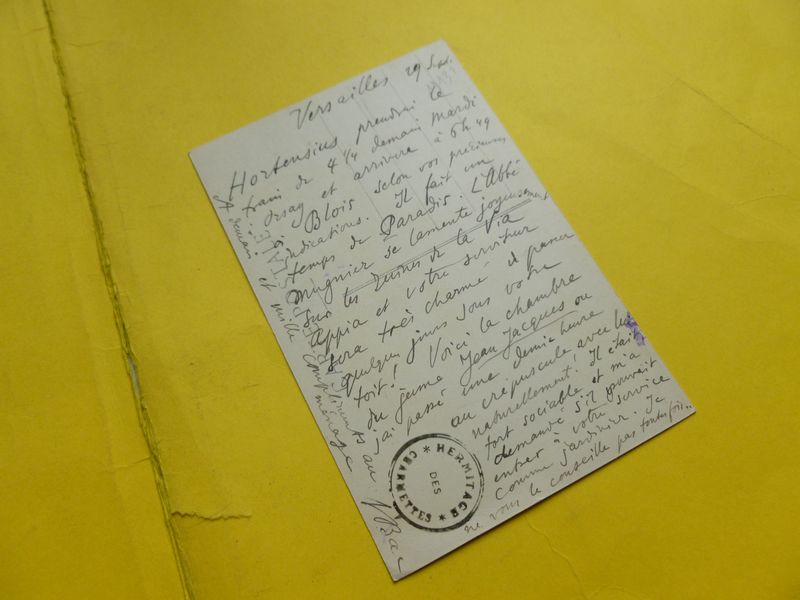 Versailles 29 Sept.
Hortensius prendrai le
train de 4 1/4 demain mardi
Orsay et arrivera à 6h 49
à Blois selon vos précieuses
indications. Il fait un
temps de Paradis. L'Abbé
Mugnier se lamente joyeusement
sur les ruines de la Via
Appia et votre serviteur
sera très charmé de passer
quelques jours sous votre
toit! Voici la chambre
du jeune Jean Jacques ou
j'ai passé une demie heure
au crépuscule avec lui
naturellement! Il était
fort sociable et m'a
demandé s'il pouvait
entrer à votre service
comme jardinier. Je
ne vous le conseille pas toutefois..
A demain et mille compliments au
ménage
FBac
HERMITAGE
DES
CHARMETTES